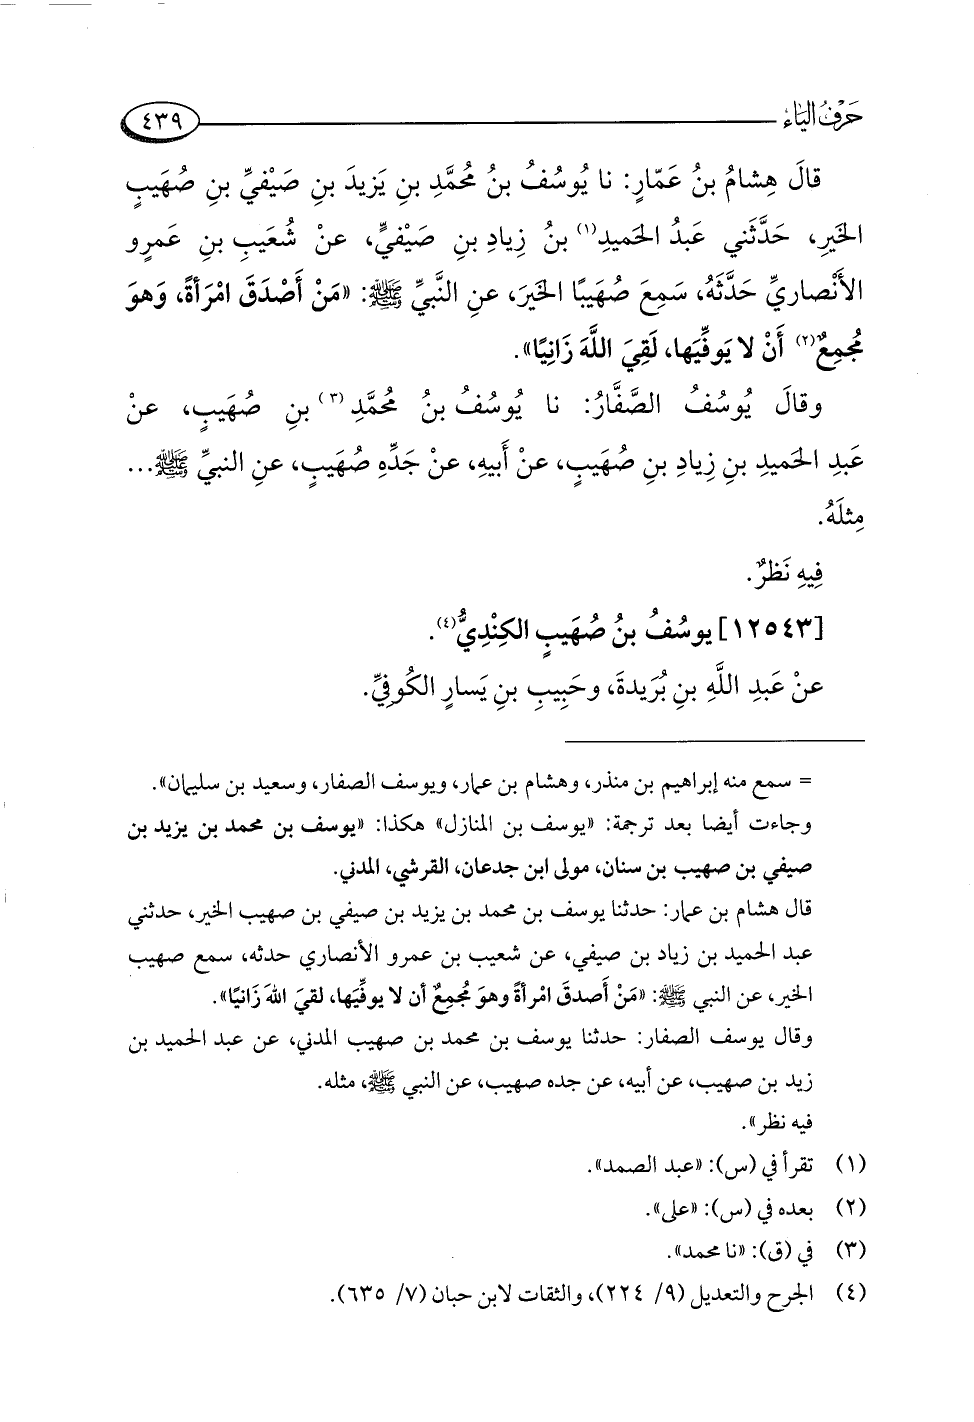 حَرْفُ الْيَاء
٤٣٩
قالَ هِشامُ بنُ عَمّارٍ: نا يُوسُفُ بنُ مُحمَّدِ بنِ يَزِيدَ بنِ صَيْفيِّ بنِ صُهَيبِ
الخَيرِ، حَدَّثَني عَبدُ الحَميدِ(١) بنُ زِيادِ بنِ صَيْفيٍّ، عنْ شُعَيبِ بنِ عَمرٍو
الأَنْصاريِّ حَدَّثَهُ، سَمِعَ صُهَيبًا الخَيرَ، عنِ النَّبيِّ ﷺ: «مَنْ أَصْدَقَ امْرَأةً، وَهوَ
مُجمِعٌ(٢) أَنْ لا يَوفِّيَها، لَقِيَ اللَّهَ زَانِيًا».
وقالَ يُوسُفُ الصَّفَّارُ: نا يُوسُفُ بنُ مُحمَّدِ(٣) بنِ صُهَيبٍ، عنْ
عَبدِ الحَميدِ بنِ زِيادِ بنِ صُهَيبٍ، عنْ أَبيهِ، عنْ جَدِّهِ صُهَيبٍ، عنِ النبيِّ ﷺ...
مِثلَهُ.
فِيهِ نَظرٌ.
[١٢٥٤٣] يوسُفُ بنُ صُهَيبٍ الكِنْدِيُّ(٤).
عنْ عَبدِ اللَّهِ بنِ بُرَيدةَ، وحَبِيبِ بنِ يَسارٍ الكُوفيِّ.
= سمع منه إبراهيم بن منذر، وهشام بن عمار، ويوسف الصفار، وسعيد بن سليمان».
وجاءت أيضا بعد ترجمة: «يوسف بن المنازل» هكذا: «يوسف بن محمد بن يزيد بن
صيفي بن صهيب بن سنان، مولى ابن جدعان، القرشي، المدني.
قال هشام بن عمار: حدثنا يوسف بن محمد بن يزيد بن صيفي بن صهيب الخير، حدثني
عبد الحميد بن زياد بن صيفي، عن شعيب بن عمرو الأنصاري حدثه، سمع صهيب
الخير، عن النبي ﷺ: «مَنْ أَصدقَ امْرأةً وهوَ مُجمِعٌ أن لا يوفِّيَها، لقيَ اللهَ زَانيًا».
وقال يوسف الصفار: حدثنا يوسف بن محمد بن صهيب المدني، عن عبد الحميد بن
زيد بن صهيب، عن أبيه، عن جده صهيب، عن النبي ﷺ، مثله.
فيه نظر».
(١) تقرأ في (س): «عبد الصمد».
(٢) بعده في (س): «على».
(٣) في (ق): «نا محمد».
(٤) الجرح والتعديل (٩/ ٢٢٤)، والثقات لابن حبان (٧/ ٦٣٥).